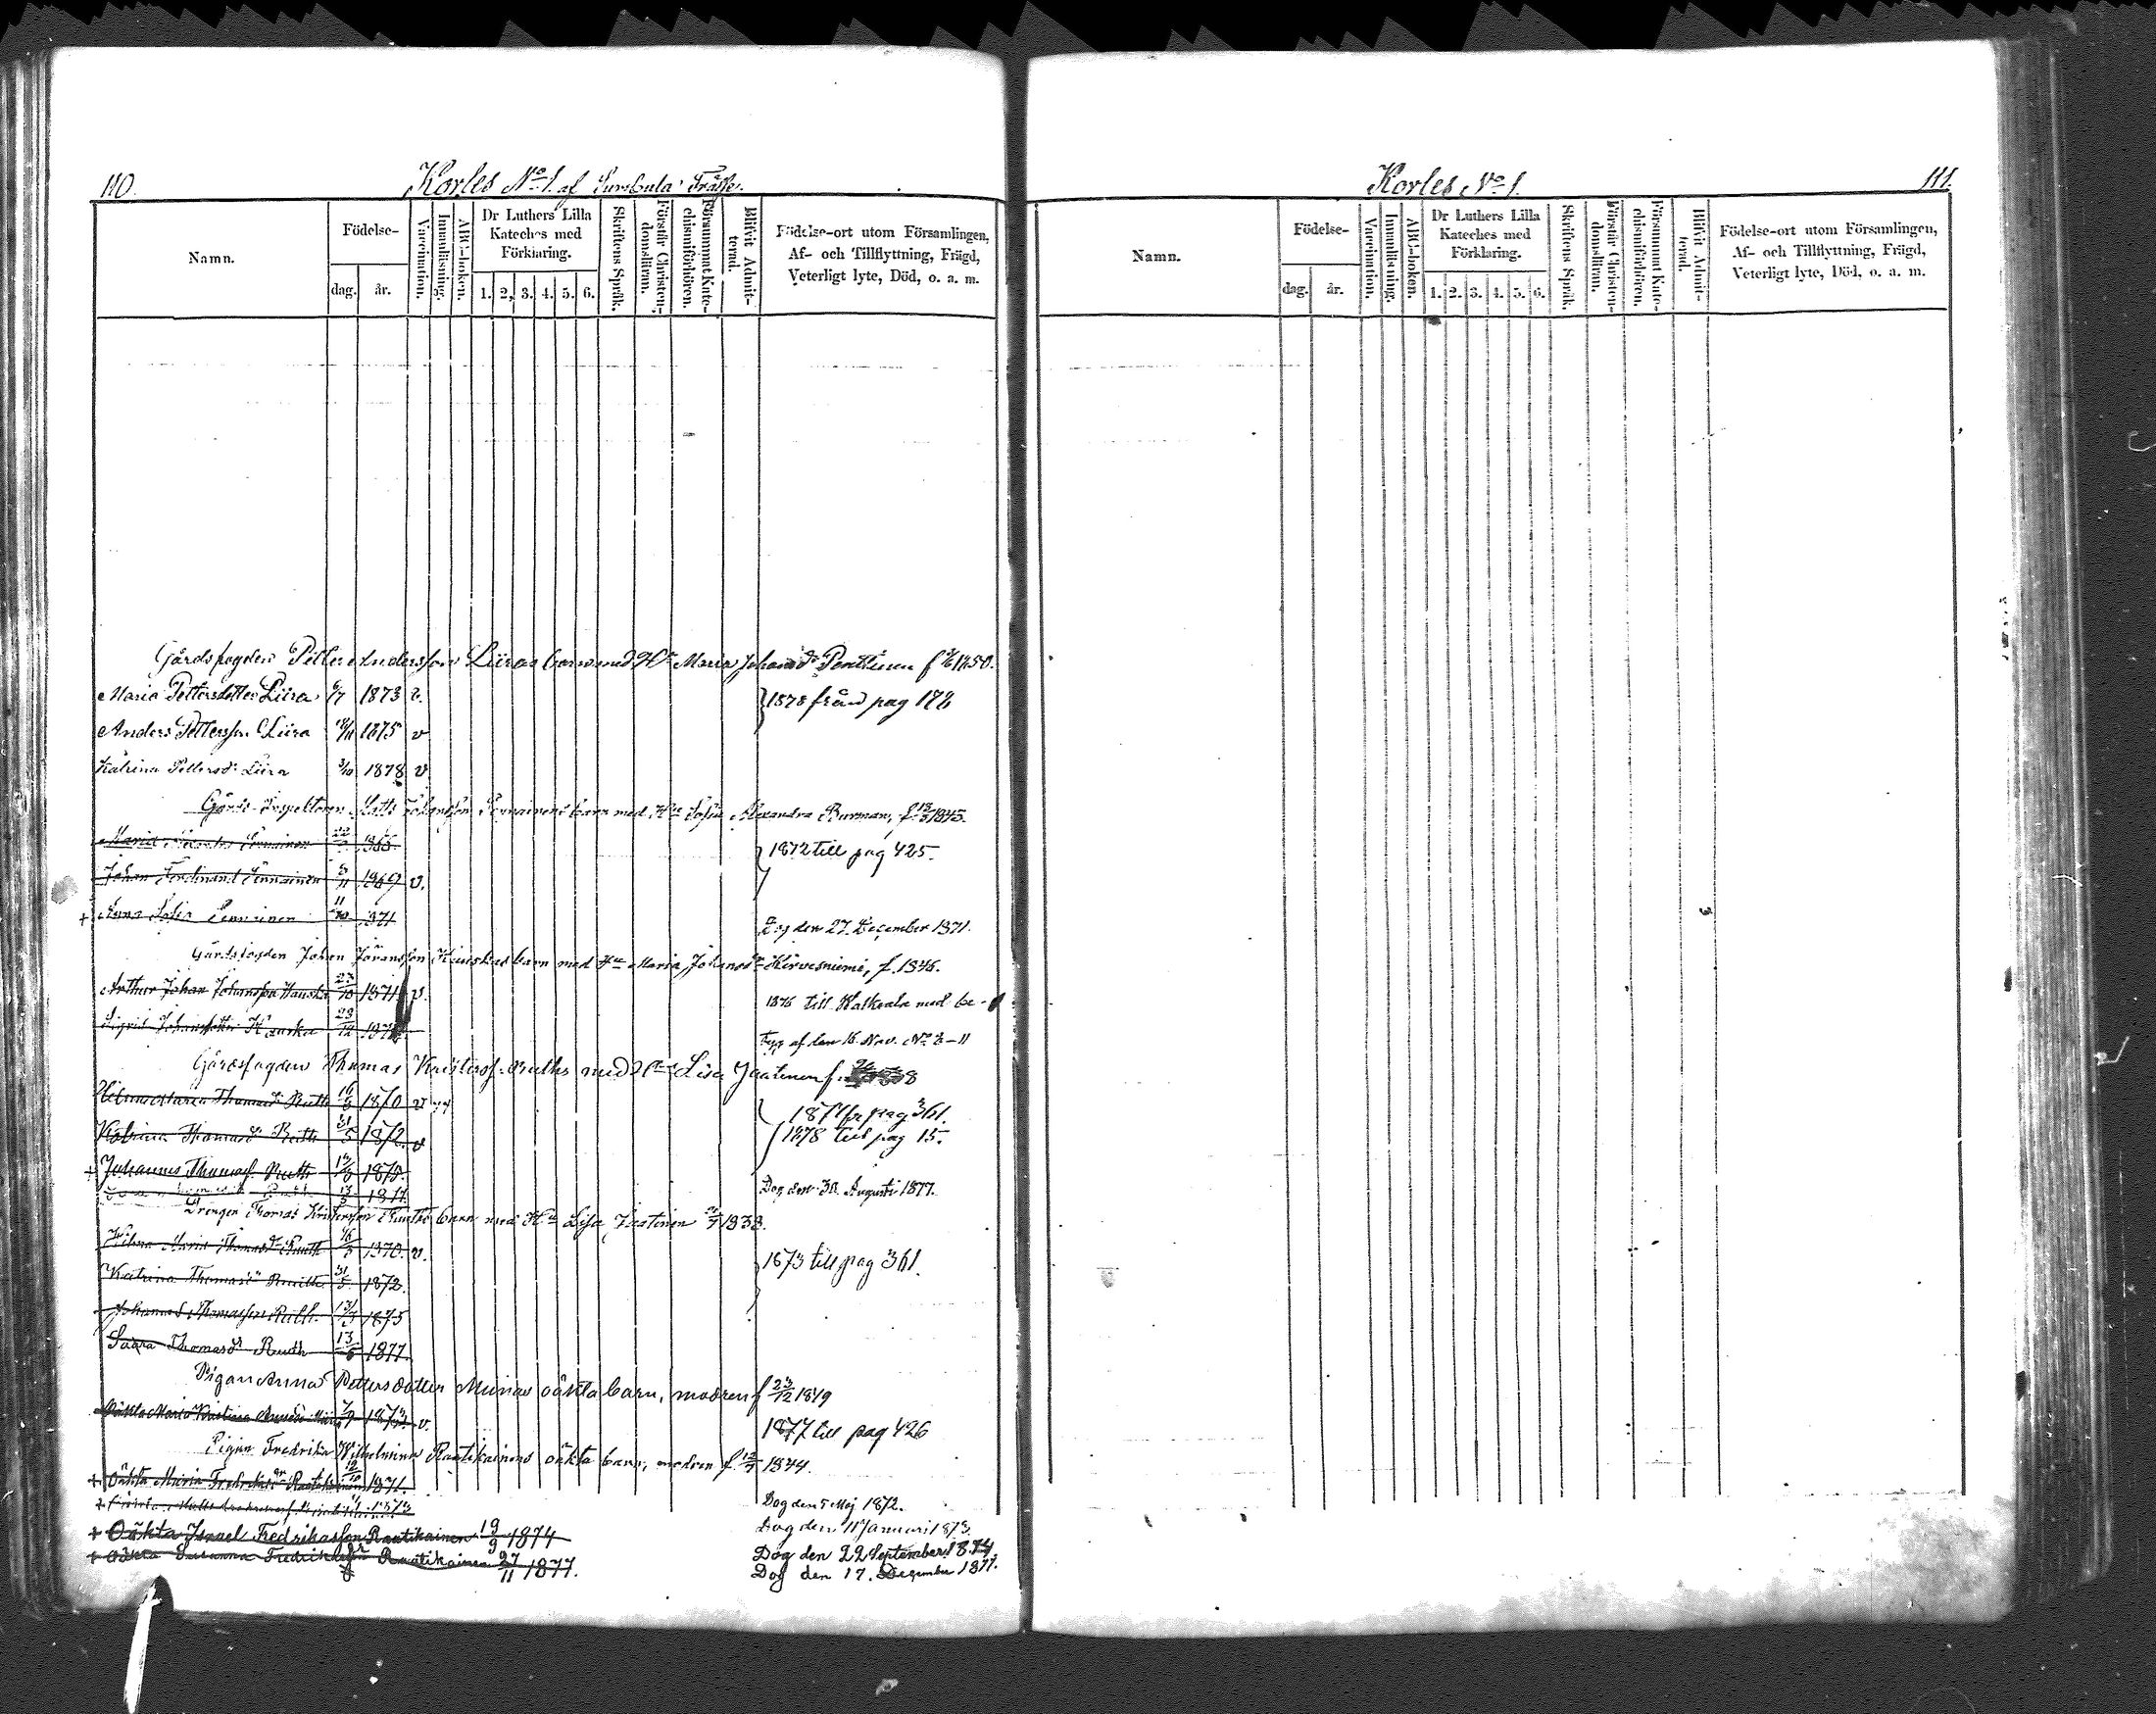 110.
Korles No 1. af
Namn.
Födelse-
dag.
år.
Vaccination.
Innanläsning.
ABC-boken.
Dr Luthers Lilla
Kateches med
Förklaring.
1. 2. 3. 4. 5. 6.
Skriftens Språk.
Förstår Christen-
domsläran.
Försummat Kate-
chismiförhören.
Blifvit Admit-
terad.
Födelse-ort utom Församlingen,
Af- och Tillflyttning, Frägd,
Veterligt lyte, Död, o. a. m.
Gårdsfogden Petter Anderssons Liiras barn med Maria Penttinen f 1850.
Maria Pettersdotter Liira 6/7 1873 v.
1878 från pag 178
Anders Petterson Liira 1875 v
Katrina Pettersdr Liira 3/10 1878 v
Gårds-Inspektoren Matts Johansson barn med Hu Sofia Alexandra Burman, f. 1843.
Maria
1872 till pag 425.
Johan Ferdinand 1869 v.
+ Anna Sofia 11/10 1871
Dog den 27. December 1871.
Gårdsfogden Johan barn med Hu Maria Johansdr Hirvesniemi, f. 1846.
Arthur Johan Johansson 23/10 1871 v.
1876 till Walkeala med be-
Sigrid Johansdotter 28/12
af den 16 Nov. No
Gårdsfogden Thomas med Hu Lisa Jaatinen f.
Hilma Maria Thomasdr Ruth 16/3 1870 v
1877 fr pag 361.
Katrina Thomasdr Ruth 31/5 1872. v
1878 till pag 15.
+ Johannes Thomass. Ruth 1875.
Ruth 13/5 1877
Dog den 30. Augusti 1877.
Drengen Thomas Kristersson Ruuths barn med Hu Lisa Jaatinen 1838.
Hilma Maria Thomasdr Ruuth 16/3 1870. v.
1873 till pag 361.
Katrina Thomasdr Ruuth 31/5 1872.
Johannes Thomasson Ruth. 1875
Saara Thomasdr Ruth 13/5 1877.
Pigan Anna Pettersdotter Muinas oäkta barn, modren f 23/12 1849
Oäkta Maria Kristina 1873. v.
1877 till pag 426
Pigan Fredrika Wilhelmina Raatikainens oäkta barn, modren f. 1844.
+ Oäkta Maria Fredrikasdr Raatikainen 12/10 1871.
Dog den 5 Maj 1872.
Dog den 11 Januari 1873.
+ Oäkta Israel Fredrikasson Raatikainen 19/9 1874
Dog den 22 September 1874.
+ Oäkta Susanna Fredrikasdr Raatikainen 27/11 1877.
Dog den 17. December 1877.
Korles No 1.
111.
Namn.
Födelse-
dag.
år.
Vaccination.
Innanläsning.
ABC-boken.
Dr Luthers Lilla
Kateches med
Förklaring.
1. 2. 3. 4. 5. 6.
Skriftens Språk.
Förstår Christen-
domsläran.
Försummat Kate-
chismiförhören.
Blifvit Admit-
terad.
Födelse-ort utom Församlingen,
Af- och Tillflyttning, Frägd,
Veterligt lyte, Död, o. a. m.